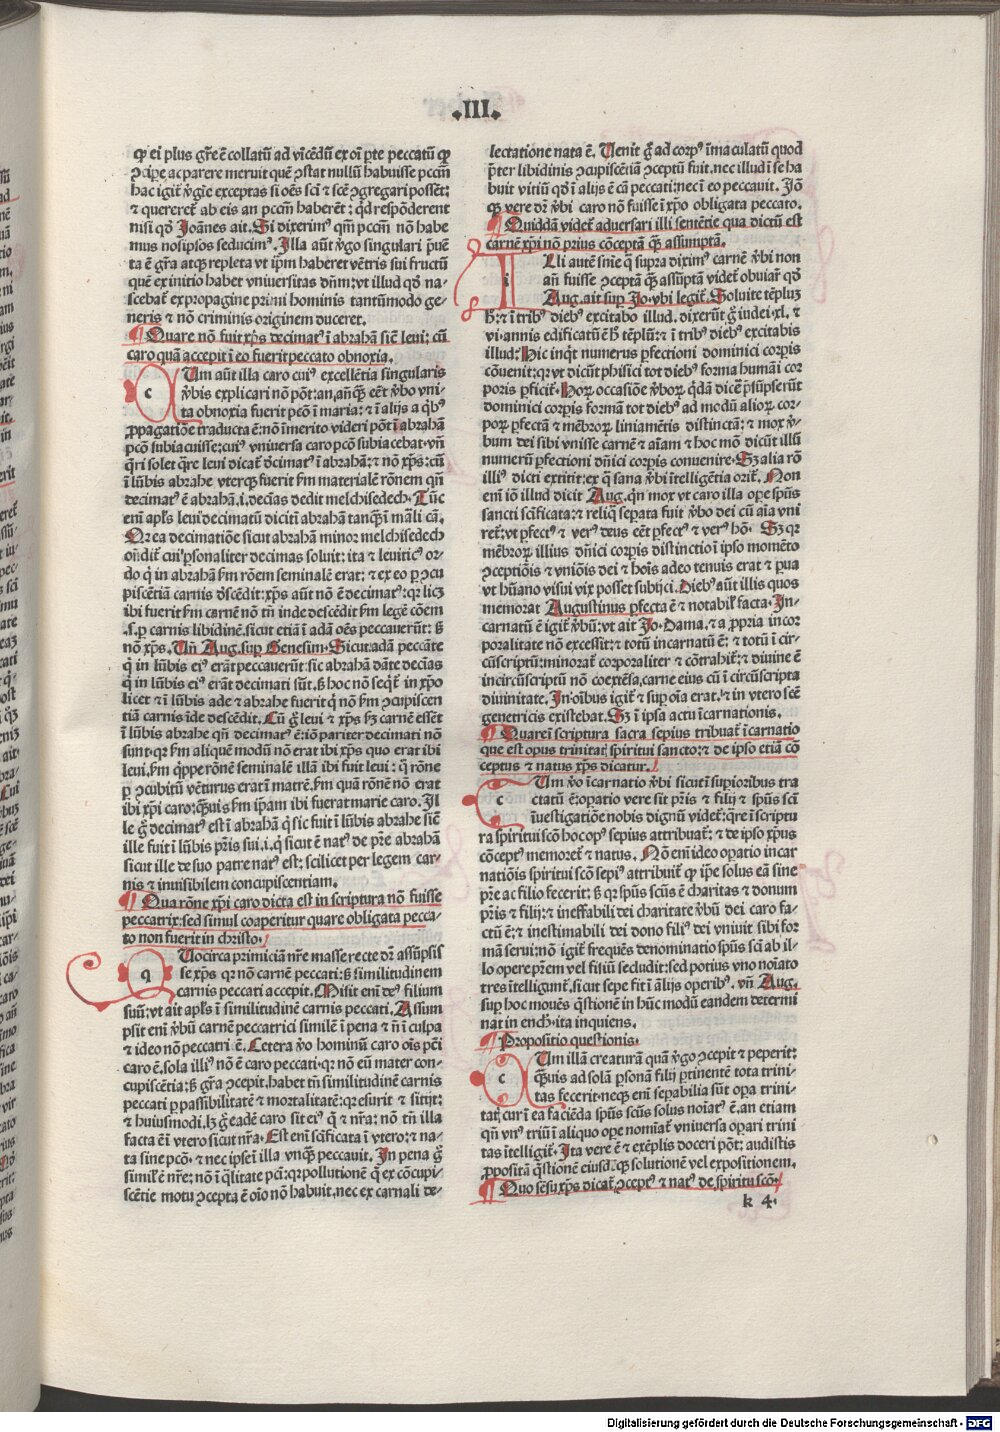 .III.
ꝙ ei plus gr̄e ē collatū ad vīcēdū ex oī ꝑte peccatū ꝙ
ꝯciꝑe ac parere meruit quē ꝯstat nullū habuisse pccm̄
hac igit᷑ v̄gīe exceptas si oēs sci̅ ⁊ scē ꝯgregari possēt:
⁊ quereret᷑ ab eis an pccm̄ haberēt: qd̓ respōderent
nisi qd̓ Joānes ait. Si dixerimꝰ qm̄ pccm̄ nō habe
mus nosipsos seducimꝰ. Illa aūt v̄go singulari p̄uē
ta ē gr̄a atqꝫ repleta vt ip̄m haberet vētris sui fructū
quē ex initio habet vniuersitas dn̄m: vt illud qd̓ na-
scebat᷑ ex propagine primi hominis tantūmodo ge-
neris ⁊ nō criminis originem duceret.
¶ Quare nō fuit xp̄s decimatꝰ ī abrahā sic̄ leui: cū
caro quā accepit ī eo fuerit peccato obnoxia.
c Um aūt illa caro cuiꝰ excellētia singularis
v̄bis explicari nō pōt: an, anq̄ꝫ eēt v̄bo vni-
ta obnoxia fuerit pcō ī maria: ⁊ ī alijs a qbꝰ
ꝓpagatiōe traducta ē: nō īmerito videri pōt ī abrahā
pcō subiacuisse: cuiꝰ vniuersa caro pcō subiacebat. vn̄
q̄ri solet q̄re leui dicat᷑ d̓cimatꝰ ī abrahā: ⁊ nō xp̄s: cū
ī lūbis abrahe vterqꝫ fuerit ẜm materialē rōnem qn̄
decimatꝰ ē abrahā .i. deciās dedit melchisedech. Tūc
enī apl̓s leui decimatū dicit ī abrahā tanq̄ꝫ ī māli cā.
Qr ea decimatiōe sicut abrahā minor melchisedech
on̄dit᷑ cui ꝑsonaliter decimas soluit: ita ⁊ leuiticꝰ or-
do q̇ in abrahā ẜm rōem seminalē erat: ⁊ ex eo ꝑ ꝯcu
piscētiā carnis d̓scēdit: xp̄s aūt nō ē decimatꝰ: qr licꝫ
ibi fuerit ẜm carnē nō tn̄ inde descēdit ẜm legē cōem
.s. ꝑ carnis libidinē. sicut etiā ī adā oēs peccauerūt: ꝫ
nō xp̄s. Un̄ Aug. suꝑ Genesim. Sicut: adā peccāte
q̇ in lūbis eiꝰ erāt peccauerūt: sic abrahā dāte deciās
q̇ in lūbis eiꝰ erāt decimati sūt. ꝫ hoc nō seq̄t᷑ in xp̄o
licet ⁊ ī lūbis ade ⁊ abrahe fuerit q̇ nō ẜm ꝯcupiscen
tiā carnis īde descēdit. Cū g̊ leui ⁊ xp̄s ẜm carnē essēt
ī lūbis abrahe qn̄ decimatꝰ ē: iō pariter decimati nō
sunt. qr ẜm aliquē modū nō erat ibi xp̄s quo erat ibi
leui. ẜm q̇ppe rōnē seminalē illā ibi fuit leui: q̄ rōne
ꝑ ꝯcubitū vēturus erat ī matrē. ẜm quā rōnē nō erat
ibi xp̄i caro: q̄ꝫuis ẜm ip̄am ibi fuerat marie caro. Il
le g̊ decimatꝰ est ī abrahā q̇ sic fuit ī lūbis abrahe sic̄
ille fuit ī lūbis pr̄is sui .i. q̇ sic̄ut ē natꝰ de pr̄e abrahā
sicut ille de suo patre natꝰ est: scilicet per legem car-
nis ⁊ inuisibilem concupiscentiam.
¶ Qua rōne xp̄i caro dicta est in scriptura nō fuisse
peccatrix: sed simul co aperitur quare obligata pecca-
to non fuerit in christo.
q Uocirca primiciā nr̄e masse recte dr̄ assūpsis
se xp̄s qr nō carnē peccati: ꝫ similitudinem
carnis peccati accepit. Misit enī deꝰ filium
suū: vt ait apl̓s ī similitudinē carnis peccati. Assum
psit enī v̄bū carnē peccatrici similē ī pena ⁊ nī ī culpa
⁊ ideo nō peccatī ē. Cetera v̄o hominū caro oīs pc̄i
caro ē. sola illiꝰ nō ē caro peccati. qr nō eū mater con-
cupiscētia: ꝫ gr̄a ꝯcepit. habet tn̄ similitudinē carnis
peccati ꝑ passibilitatē ⁊ mortalitatē: qr esurit ⁊ sitijt:
⁊ huiusmodi. lꝫ g̊ eadē caro sit eiꝰ q̄ ⁊ nr̄a: nō tn̄ illa
facta ē ī vtero sicut nr̄a. Est enī scīficata ī vtero: ⁊ na-
ta sine pcō. ⁊ nec ipse ī illa vnq̄ꝫ peccauit. In pena g̊
simil̓ ē nr̄e: nō ī q̄litate pcī: qr pollutionē q̄ ex cōcupi-
scētie motu ꝯcepta ē oīo nō habuit. nec ex carnali de-
lectatione nata ē. Uenit g̊ ad corpꝰ īmaculatū quod
p̄ter libidinis ꝯcupiscētiā ꝯceptū fuit. nec illud ī se ha
buit vitiū qd̓ ī alijs ē cā peccati: nec ī eo peccauit. Jō
qꝫ vere dr̄ v̄bi caro nō fuisse ī xp̄o obligata peccato.
¶ Quiddā videt᷑ aduersari illi sentētie qua dictū est
carnē xp̄i nō prius cōceptā q̄ꝫ assumptā.
i Lli autē sn̄ie q̄ supra diximꝰ carnē v̄bi non
an̄ fuisse ꝯceptā q̄ꝫ assūptā videt᷑ obuiar̓ qd̓
Aug. ait suꝑ Jo. vbi legit᷑. Soluite tēpluꝫ
h̓: ⁊ ī tribꝰ diebꝰ excitabo illud. dixerūt g̊ iudei .xl. ⁊
vi. annis edificatū ē h̓ tēplū: ⁊ ī tribꝰ diebꝰ excitabis
illud: Hic inq̇t numerus ꝑfectioni dominici corpis
cōuenit: qr vt dicūt phisici tot diebꝰ forma humāi cor
poris ꝑficit᷑. Horꝫ occasiōe v̄borꝫ q̇dā dic̄e p̄sūpserūt
dominici corꝑis formā tot diebꝰ ad modū aliorꝫ cor-
porꝫ ꝑfectā ⁊ mēbrorꝫ liniamētis distinctā: ⁊ mox v̄-
bum dei sibi vnisse carnē ⁊ aīam ⁊ hoc mō dicūt illū
numerū ꝑfectioni dn̄ici corpis conuenire. Sꝫ alia rō
illiꝰ dicti extitit: ex q̄ sana v̄bi ītelligētia orit᷑. Non
enī iō illud dicit Aug. qn̄ mox vt caro illa oꝑe spūs
sancti scīficata: ⁊ reliq̄ seꝑata fuit v̄bo dei cū aīa vni
ret᷑: vt ꝑfectꝰ ⁊ verꝰ deus eēt ꝑfectꝰ ⁊ verꝰ hō. Sꝫ qr
mēbrorꝫ illius dn̄ici corpis distinctio ī ipso momēto
ꝯceptiōis ⁊ vniōis dei ⁊ hoīs adeo tenuis erat ⁊ ꝑua
vt hūano visui vix posset subijci. Diebꝰ aūt illis quos
memorat Augustinus ꝑfecta ē ⁊ notabil̓ facta. In-
carnatū ē igit᷑ v̄bū: vt ait Jo. Dama. ⁊ a ꝓpria incor
poralitate nō excessit: ⁊ totū incarnatū ē: ⁊ totū ī cir-
cūscriptū: minorat᷑ corporaliter ⁊ cōtrahit᷑: ⁊ diuine ē
incircūscriptū nō coextēsa, carne eius cū ī circūscripta
diuinitate. In oībus igit᷑ ⁊ suꝑ oīa erat. ⁊ in vtero scē
genetricis existebat. Sꝫ ī ipsa actu īcarnationis.
¶ Quare ī scriptura sacra sepius tribuat᷑ īcarnatio
que est opus trinitat᷑ spiritui sancto: ⁊ de ipso etiā cō
ceptus ⁊ natus xp̄s dicatur.
c Um v̄o īcarnatio v̄bi sicut ī suꝑioribus tra
ctatū ē: oꝑatio vere sit pr̄is ⁊ filij ⁊ spūs sci̅
īuestigatiōe nobis dignū videt᷑: q̄re ī scriptu
ra spiritui scō hoc opꝰ sepius attribuat᷑: ⁊ de ipso xp̄us
cōceptꝰ memoret᷑ ⁊ natus. Nō enī ideo oꝑatio incar
natiōis spiritui scō sepiꝰ attribuit᷑ ꝙ ip̄e solus eā sine
pr̄e ac filio fecerit: ꝫ qr spūs scūs ē charitas ⁊ donum
pr̄is ⁊ filij: ⁊ ineffabili dei charitate v̄bū dei caro fa-
ctū ē: ⁊ inestimabili dei dono filiꝰ dei vniuit sibi for
mā serui: nō igit᷑ frequēs denominatio spūs sci̅ ab il-
lo opere pr̄em vel filiū secludit: sed potius vno noīato
tres ītelligunt᷑. sicut sepe fit ī alijs oꝑibꝰ. vn̄ Aug.
suꝑ hoc mouēs q̄stionē in hūc modū eandem determi
nat in ench̓. ita inquiens.
¶ Propositio questionis.
c Um illā creaturā quā v̄go ꝯcepit ⁊ peperit:
q̄ꝫuis ad solā ꝑsonā filij ꝑtinentē tota trini-
tas fecerit: neqꝫ enī seꝑabilia sūt oꝑa trini-
tat᷑: cur ī ea faciēda spūs scūs solus noīatꝰ ē. an etiam
qn̄ vnꝰ triū ī aliquo oꝑe nomīat᷑ vniuersa oꝑari trini
tas ītelligit᷑. Ita vere ē ⁊ exēplis doceri pōt: audistis
ꝓpositā q̄stionē eiusdēqꝫ solutionē vel expositionem.
¶ Quo sēsu xp̄s dicat᷑ ꝯceptꝰ ⁊ natꝰ de spiritu scō.
k 4.
Digitalisierung gefördert durch die Deutsche Forschungsgemeinschaft - DFG